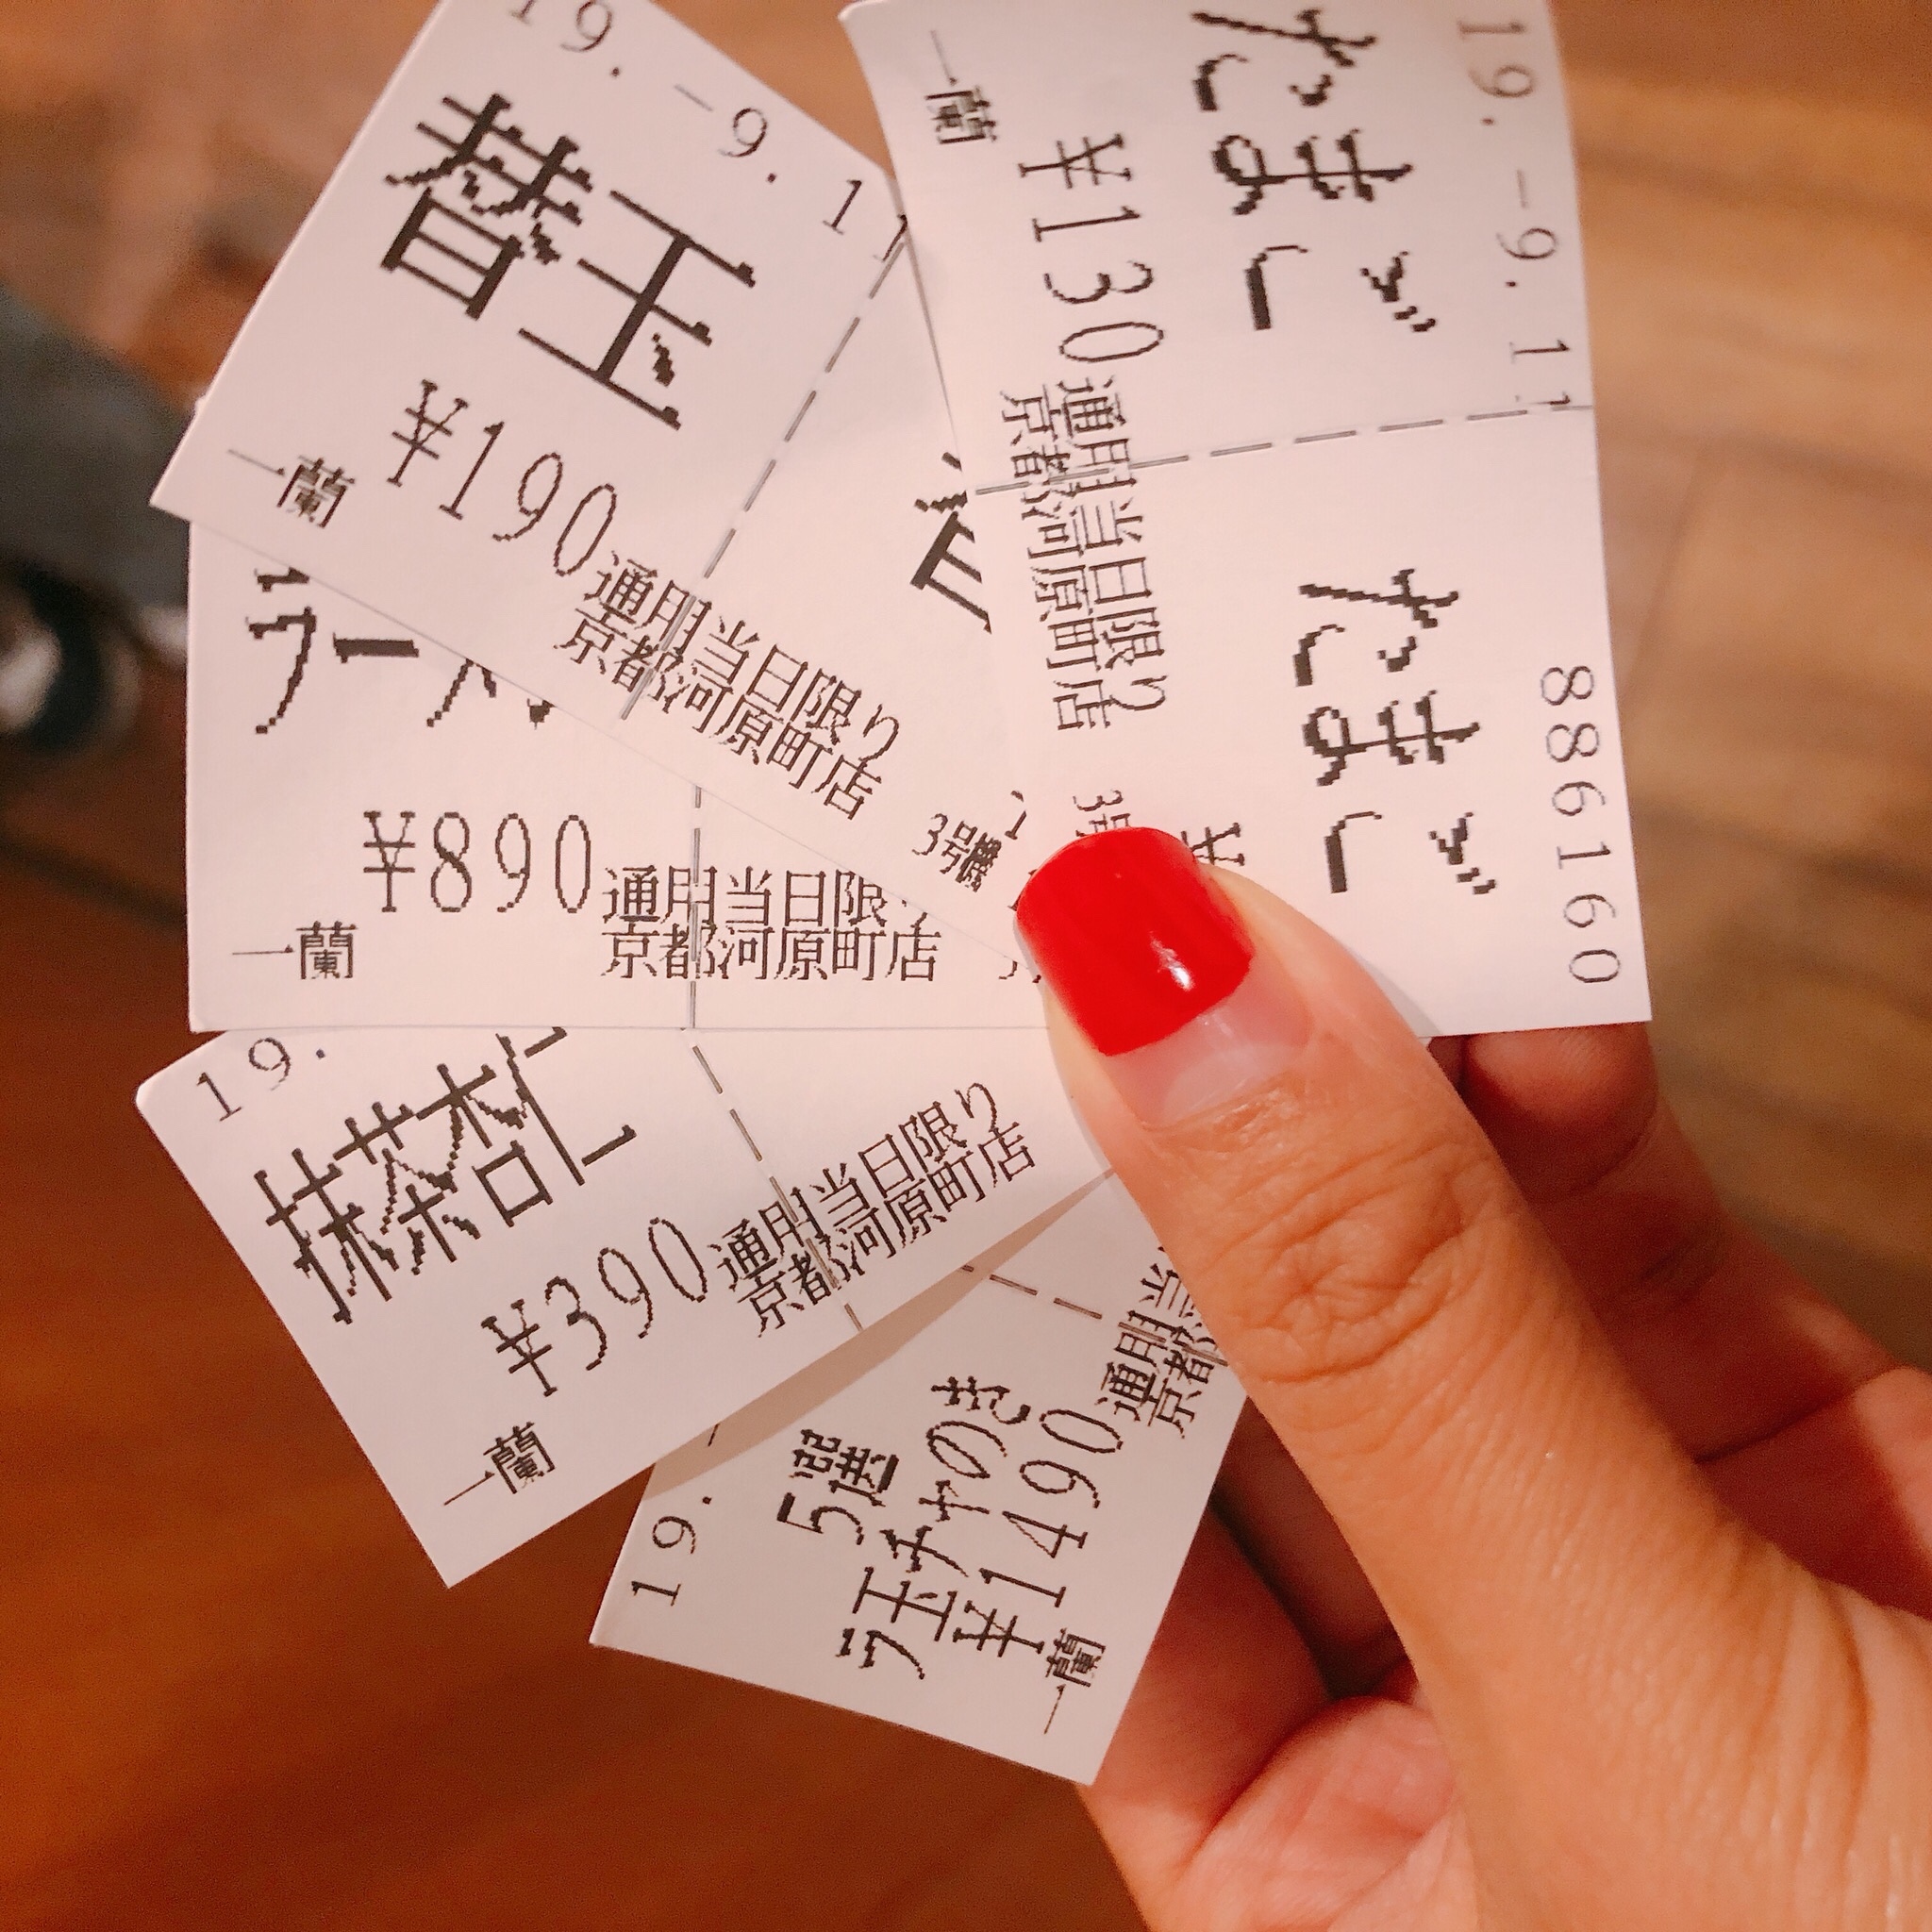 19.-9.11
替玉
¥190
通用当日限り
京都河原町店
一蘭
3号機
19.-9.11
たまご
¥130
通用当日限り
京都河原町店
一蘭
たまご
886160
ラーメン
¥890
通用当日限り
京都河原町店
一蘭
19.
抹茶杏仁
¥390
通用当日限り
京都河原町店
一蘭
19.
5選
ラ玉チャのき
¥1490
通用当
京都
一蘭